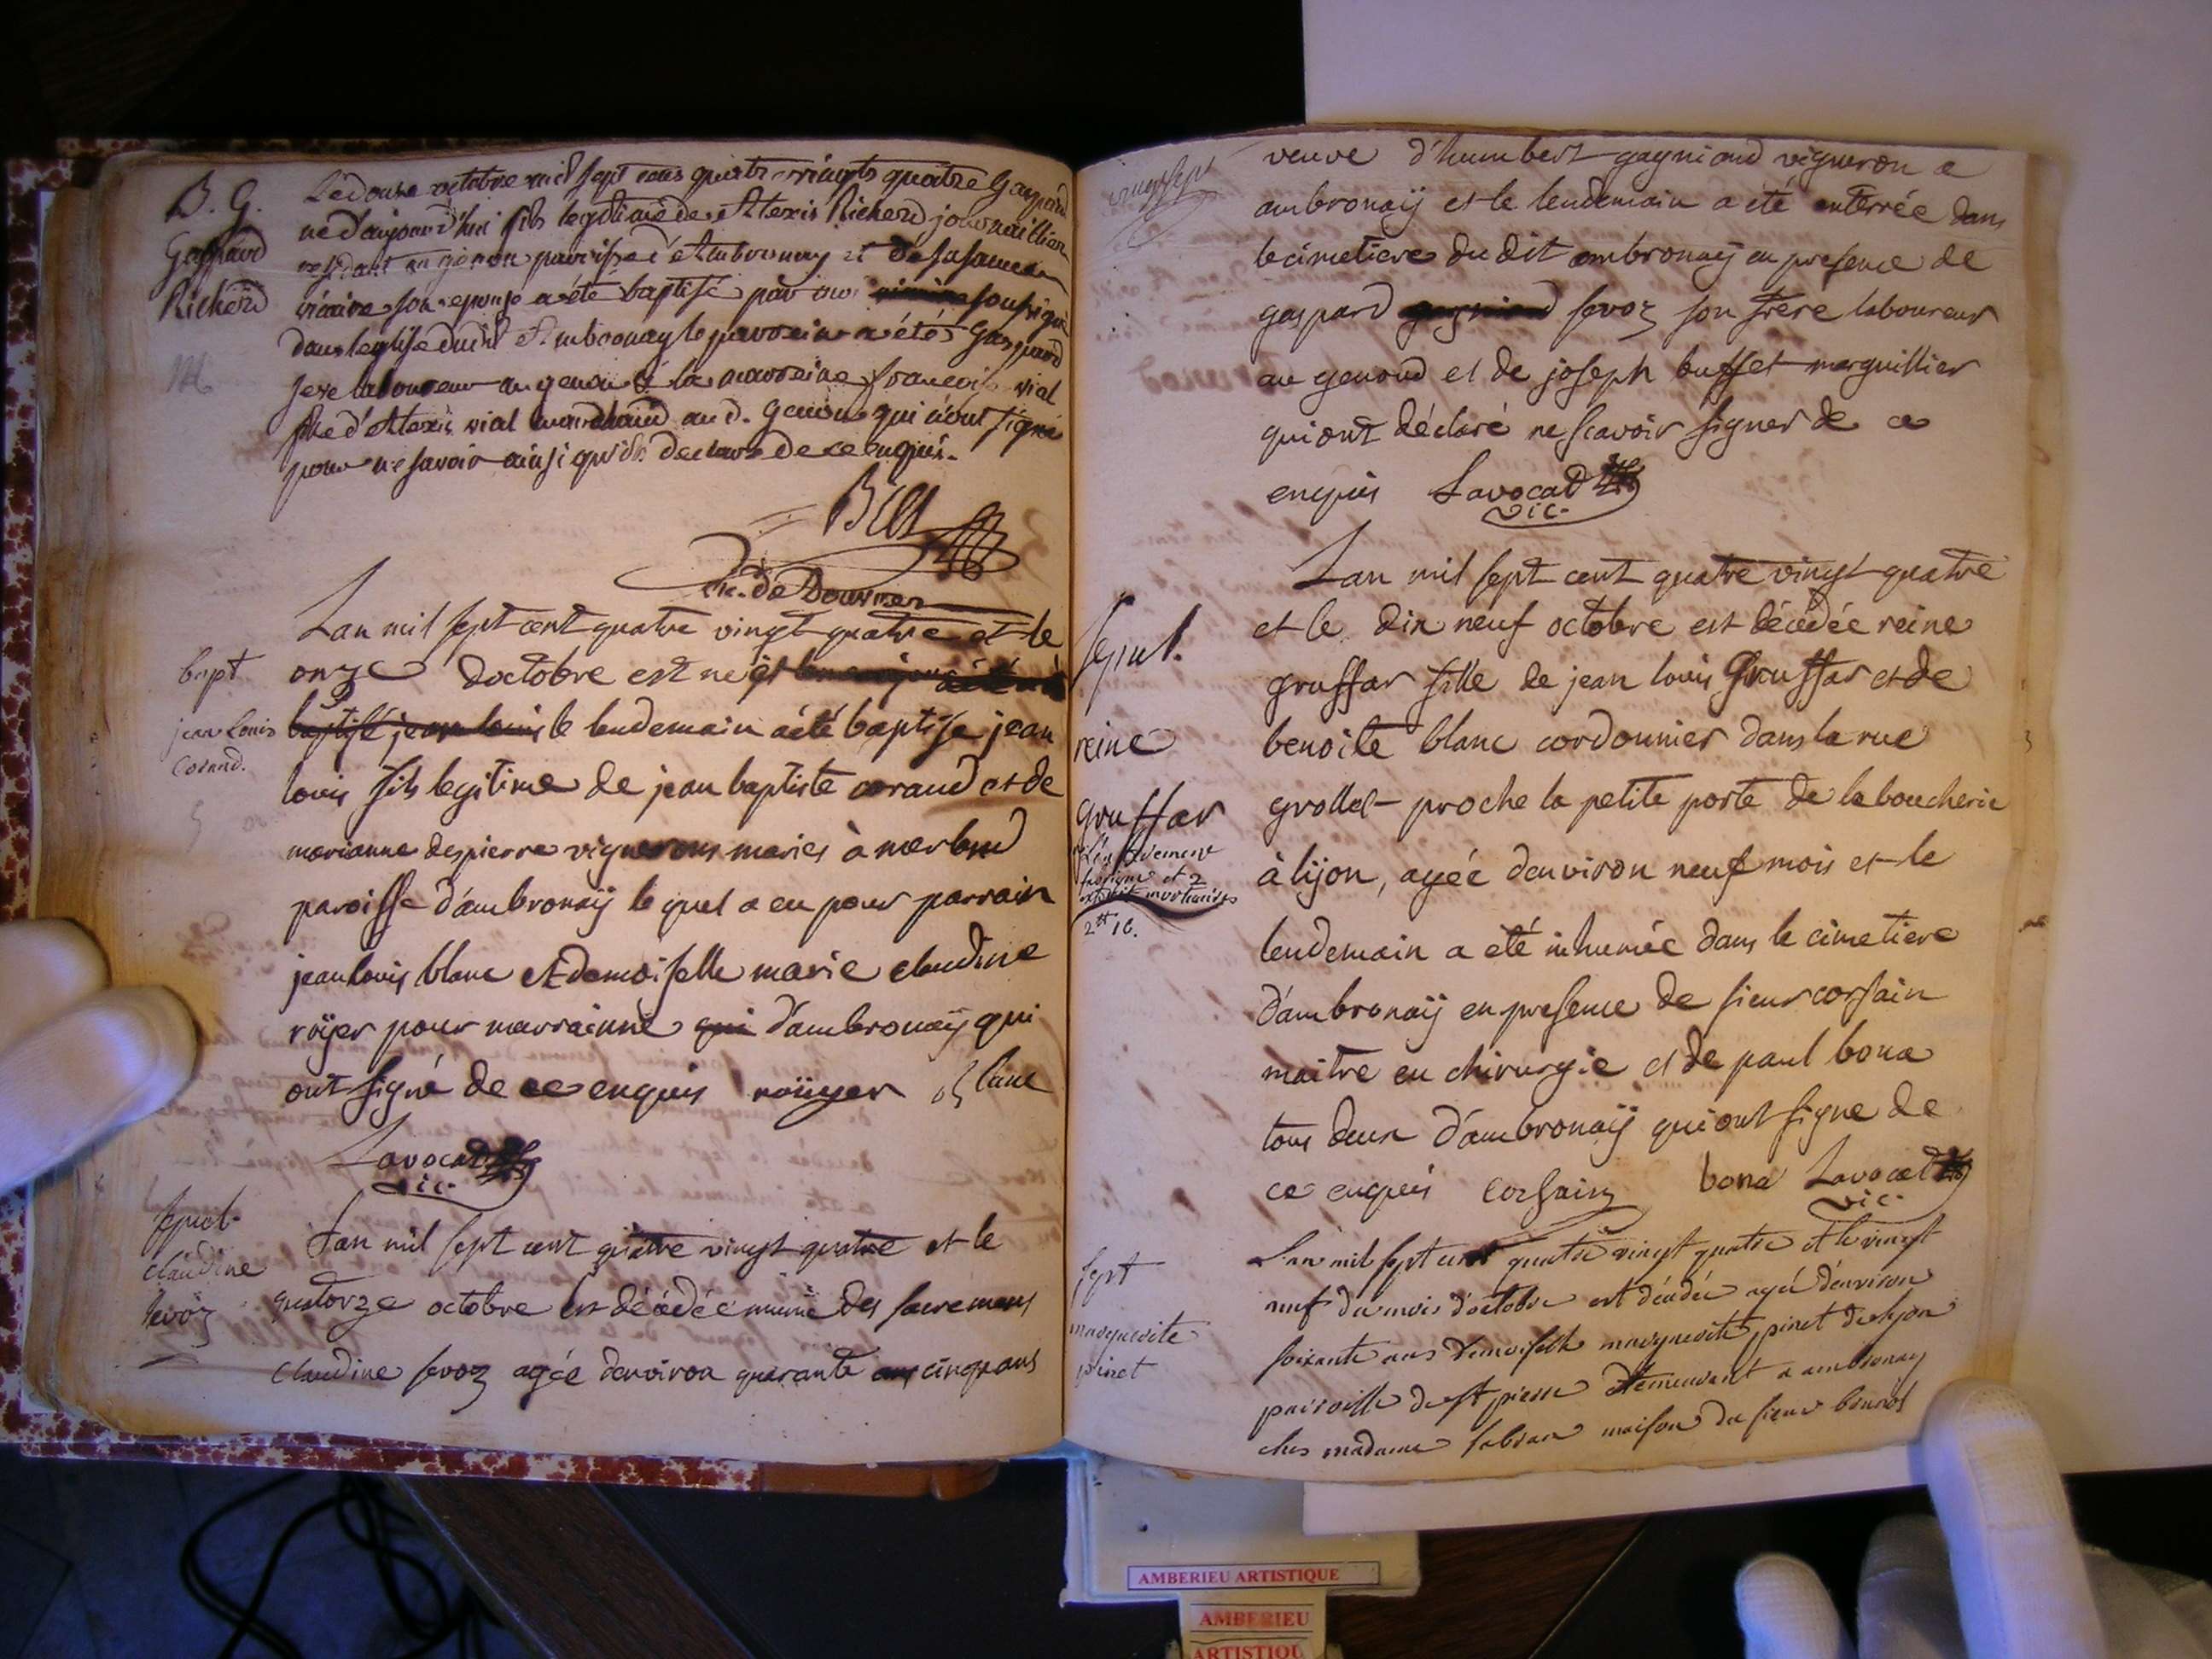 B. G.
Gaspard
Richerd
Le douze octobre mil sept cens quatre vingts quatre Gaspard
né d'aujourd'hui fils legitime de Alexis Richerd journaillier
résidant au genou paroisse d'Ambronay et de
son epouse a été baptisé par moi soussigné
dans leglise dudit Ambronay le parrein a étés Gaspard
laboureur au genou & la marreine francoise vial
fille d'Alexis vial marchand au d. Genou qui n'ont signé
pour ne savoir ainsi qu'ils declare de ce enquis.
Vic. de Douvres
bapt
jean Louis
Corand.
Lan mil sept cent quatre vingt quatre et le
onze doctobre est né et
baptisé jean louis le lendemain a été baptise jean
louis fils legitime de jean baptiste corand et de
marianne despierre vignerons mariés à merland
paroisse d'ambronaÿ le quel a eu pour parrain
jean louis blanc et demoiselle marie claudine
roÿer pour marrainne qui d'ambronaÿ qui
ont signé de ce enquis roüyer blanc
Lavocat
vic.
sepul.
claudine
sevoz
Lan mil sept cent quatre vingt quatre et le
quatorze octobre est décédée munie des sacremens
claudine sevoz agée denviron quarante cinq ans
vingt sept
veuve d'humbert gagniard vigneron a
ambronaÿ et le lendemain a été enterrée dans
le cimetiere du dit ambronaÿ en presence de
gaspard gagniard sevoz son frere laboureur
au genoud et de joseph buffet marguillier
qui ont déclaré ne scavoir signer de ce
enquis Lavocat
vic.
sepul.
reine
gruffar
2tt 1c.
Lan mil sept cent quatre vingt quatre
et le dix neuf octobre est décédée reine
gruffar fille de jean louis Gruffar et de
benoite blanc cordonnier dans la rue
grollet proche la petite porte de la boucherie
à lijon, agée denviron neuf mois et le
lendemain a eté inhumée dans le cimetiere
d'ambronaÿ en presence de sieur corsain
maitre en chirurgie et de paul bona
tous deux d'ambronaÿ qui ont signe de
ce enquis corsain bona Lavocat
vic.
sept
marguerite
pinet
Lan mil sept cent quatre vingt quatre et le vingt
neuf du mois d'octobre est décédée agée denviron
soixante ans demoiselle marguerite pinet de lyon
paroisse de st pierre demeurant a ambronay
ches madame sabran maison du sieur
AMBERIEU ARTISTIQUE
AMBERIEU
ARTISTIQU